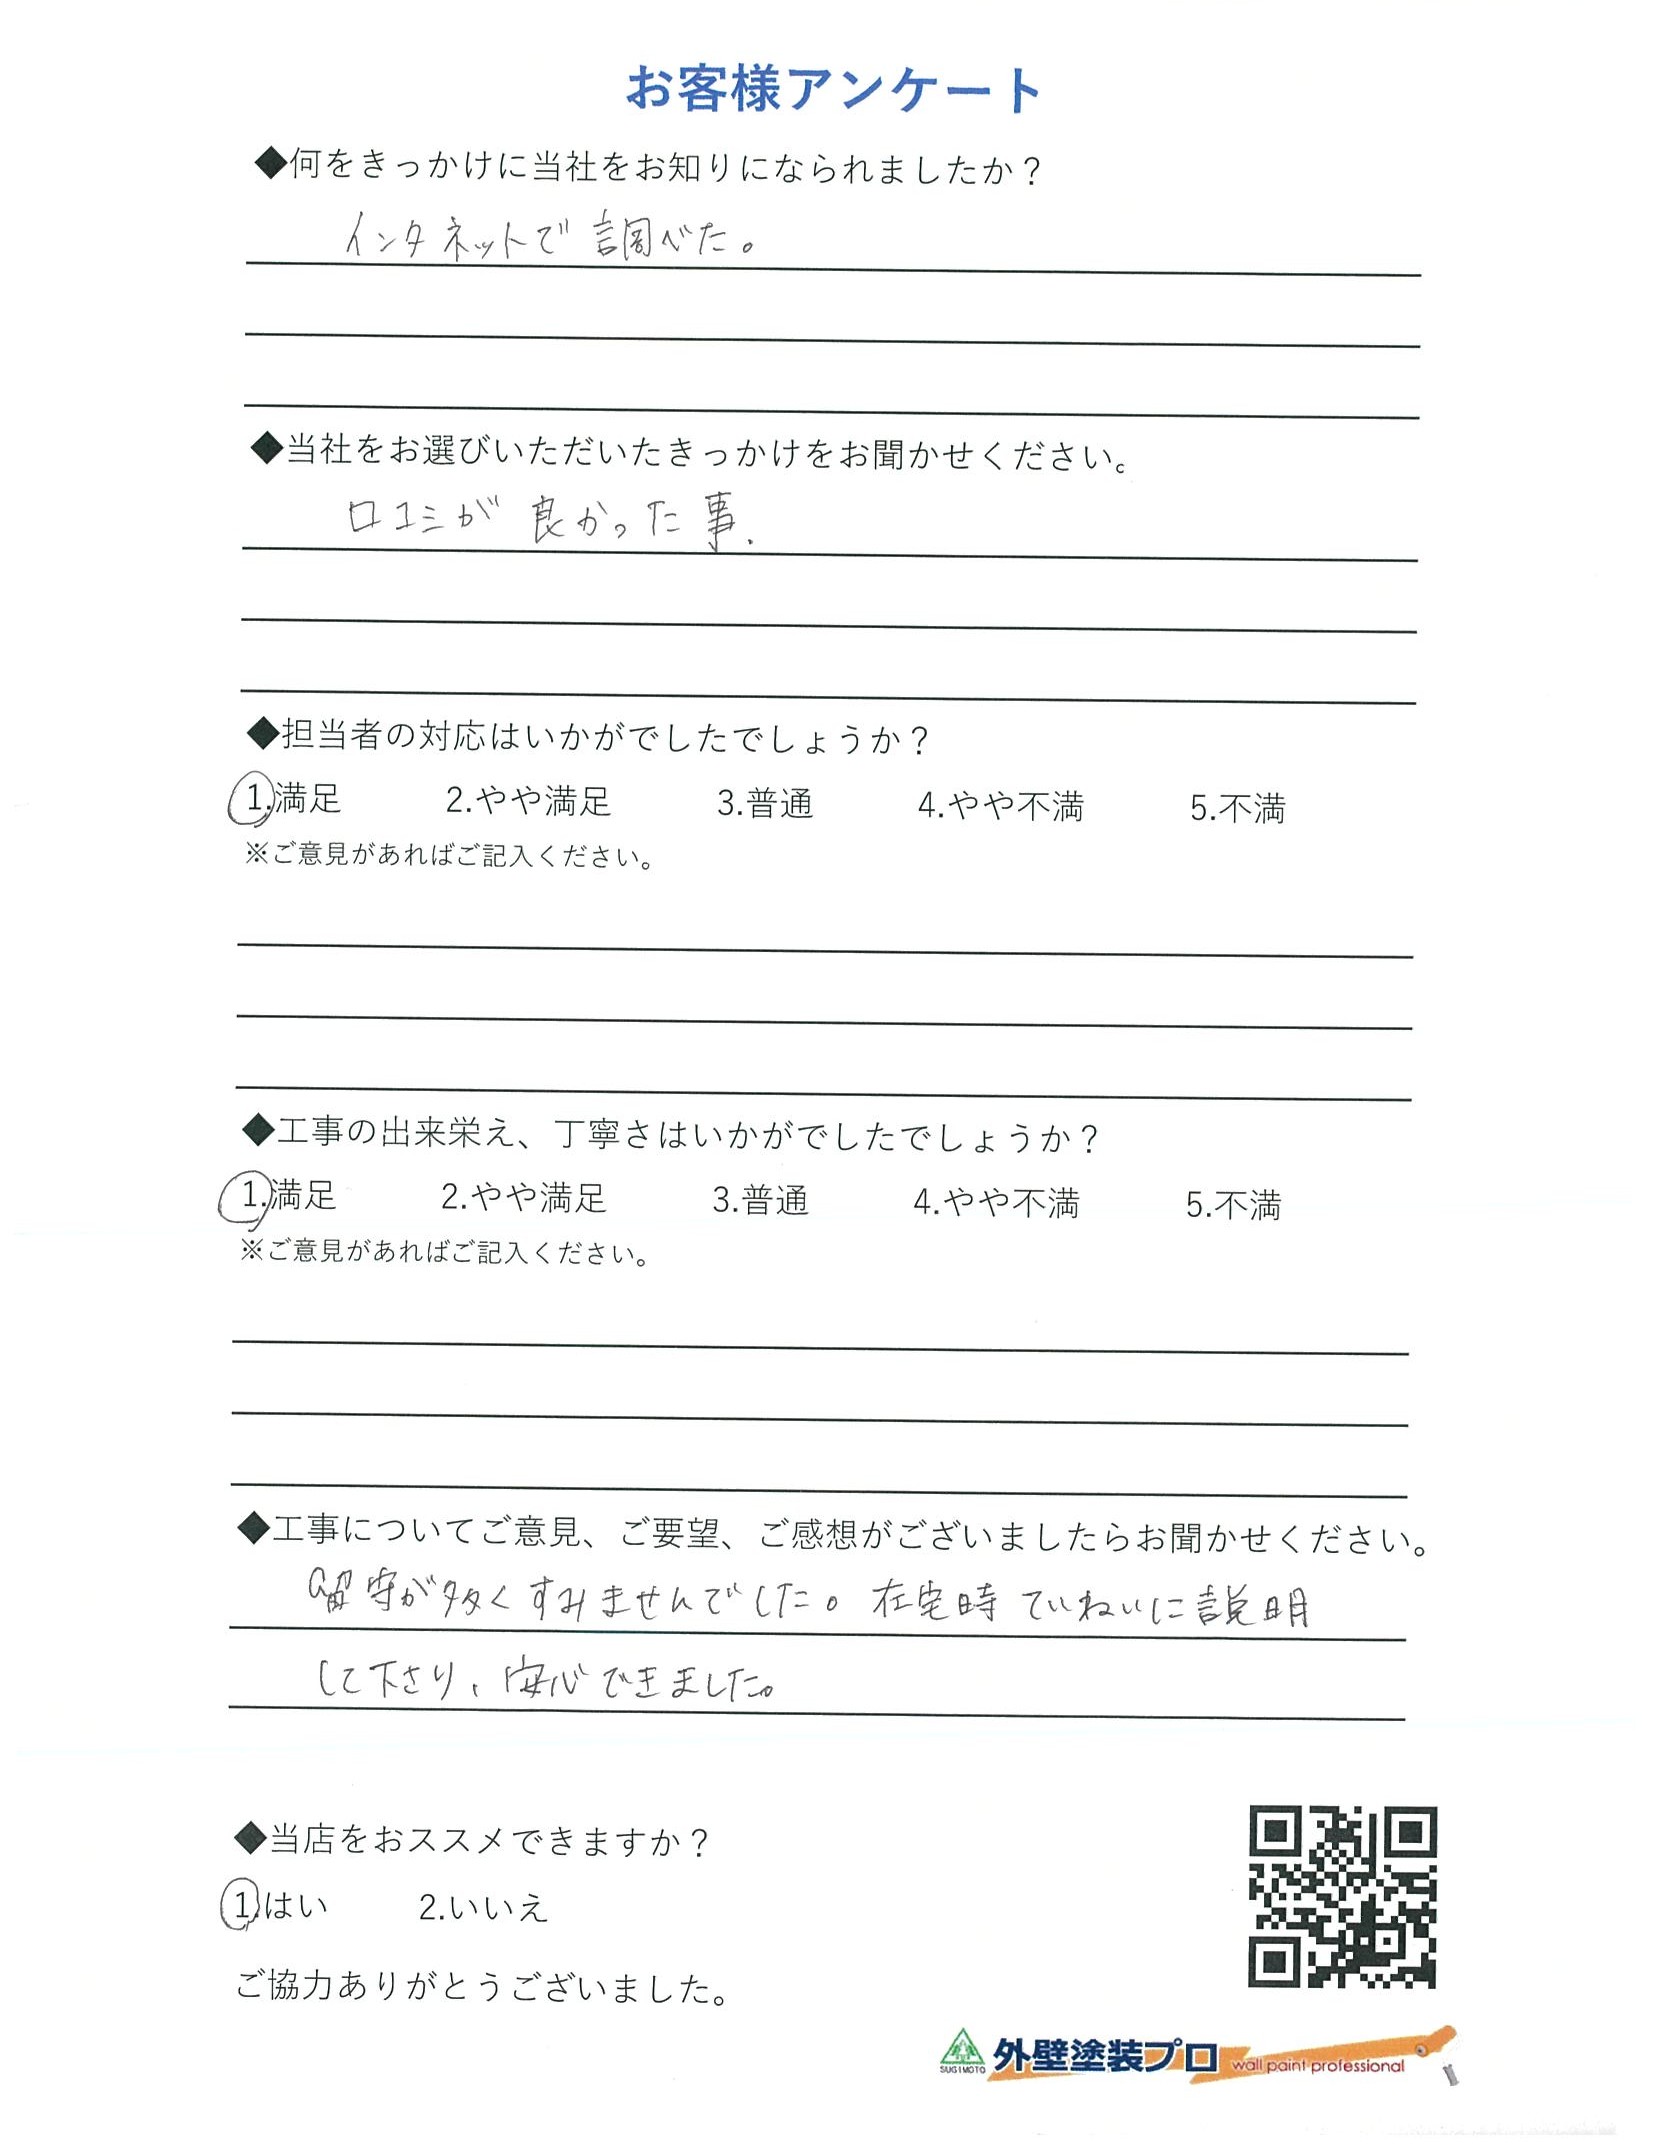 お客様アンケート
◆何をきっかけに当社をお知りになられましたか？
インタネットで調べた。
◆当社をお選びいただいたきっかけをお聞かせください。
口コミが良かった事.
◆担当者の対応はいかがでしたでしょうか？
1.満足 2.やや満足 3.普通 4.やや不満 5.不満
※ご意見があればご記入ください。
◆工事の出来栄え、丁寧さはいかがでしたでしょうか？
1.満足 2.やや満足 3.普通 4.やや不満 5.不満
※ご意見があればご記入ください。
◆工事についてご意見、ご要望、ご感想がございましたらお聞かせください。
留守が多くすみませんでした。在宅時ていねいに説明
して下さり、安心できました。
◆当店をおススメできますか？
1.はい 2.いいえ
ご協力ありがとうございました。
SUGIMOTO 外壁塗装プロ wall paint professional